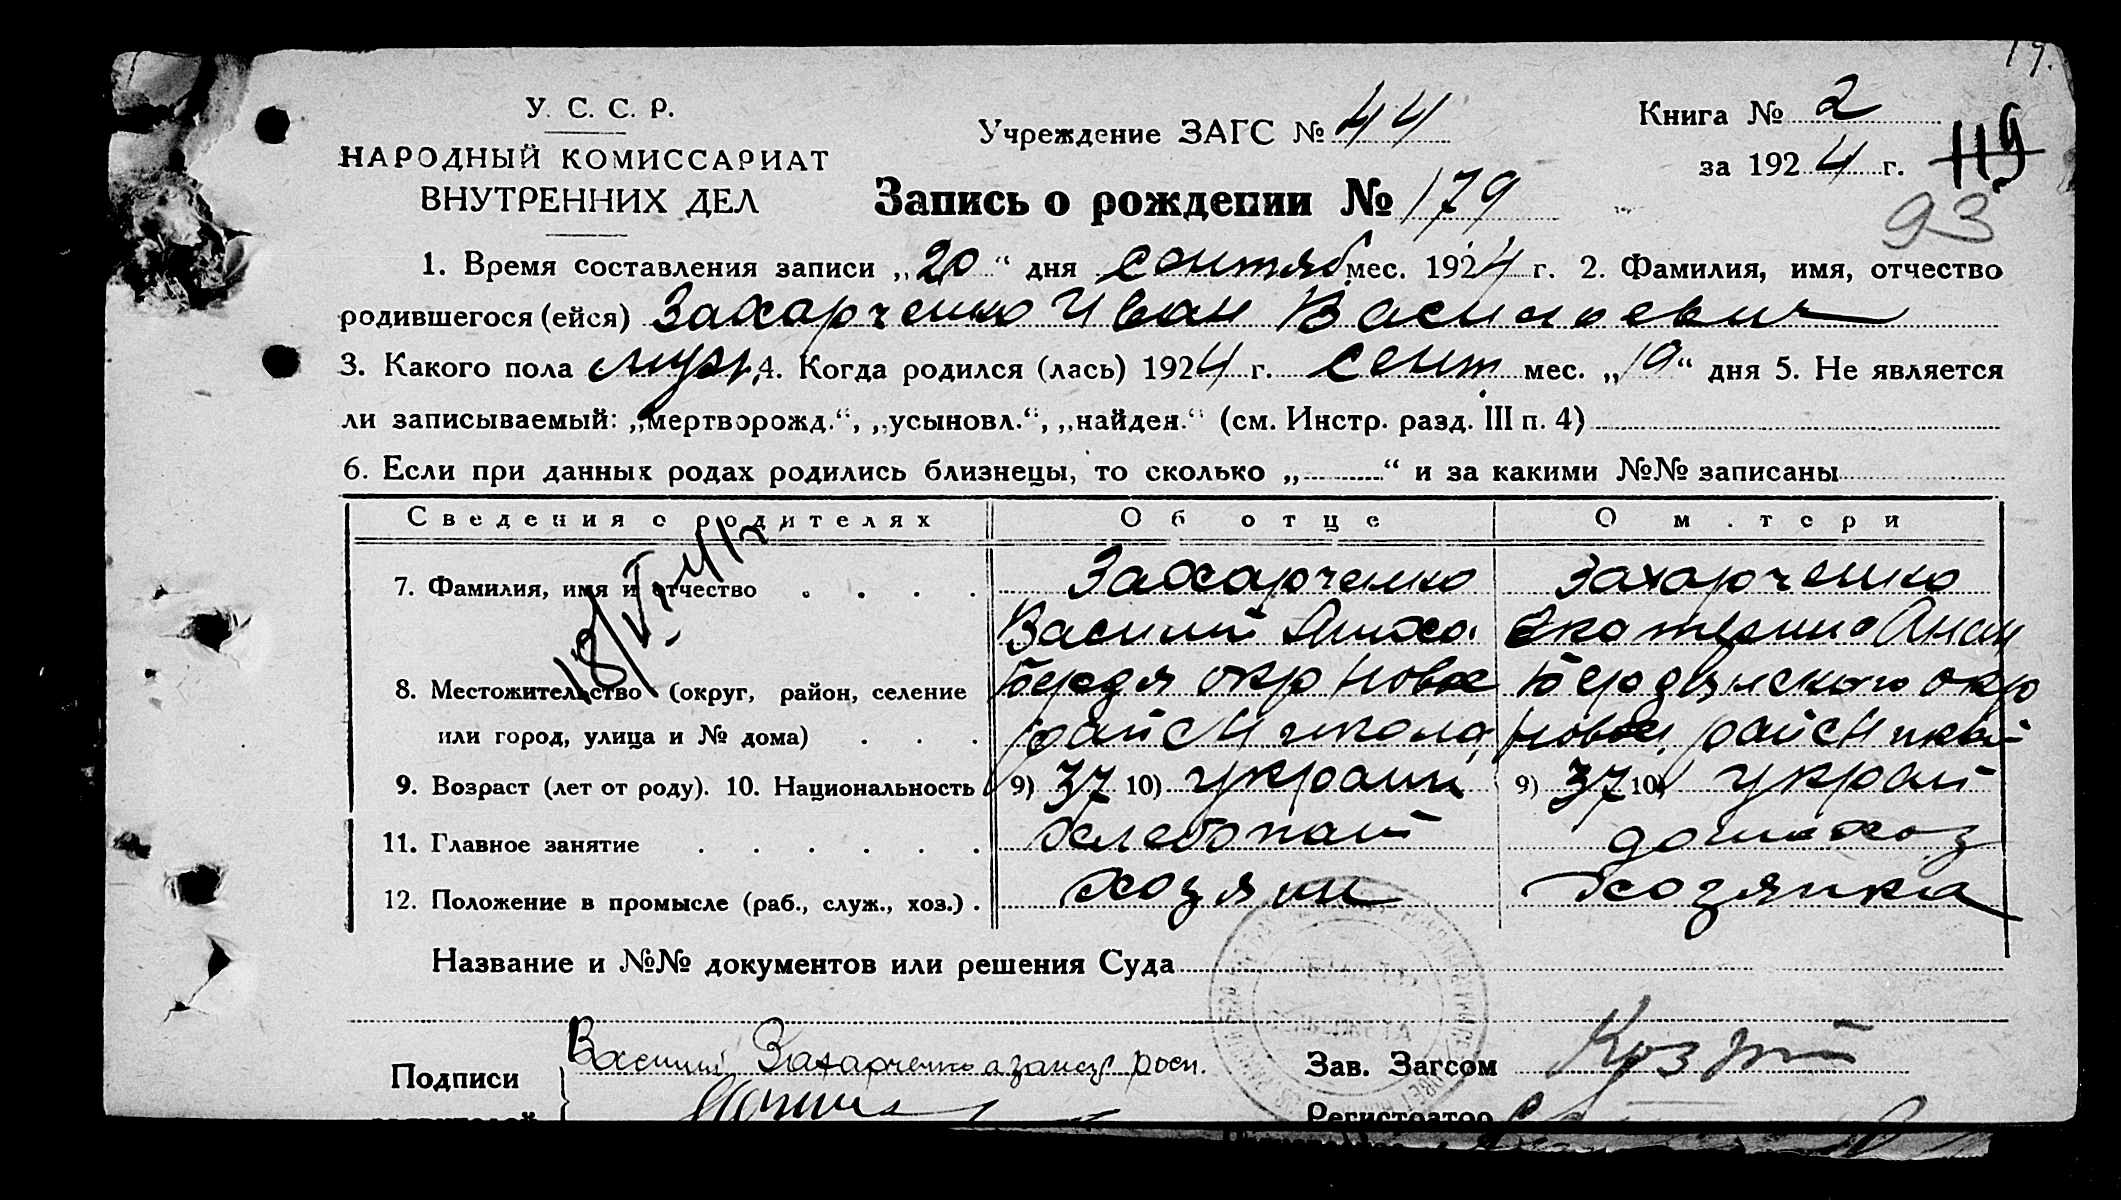 19.
У. С. С. Р.
НАРОДНЫЙ КОМИССАРИАТ
ВНУТРЕННИХ ДЕЛ
Учреждение ЗАГС № 44
Книга № 2
за 1924 г.
119
93
Запись о рождении № 179
1. Время составления записи „20“ дня сентяб. мес. 1924 г. 2. Фамилия, имя, отчество
родившегося (ейся) Захарченко Иван Васильевич
3. Какого пола муж. 4. Когда родился (лась) 1924 г. сент. мес. „19“ дня 5. Не является
ли записываемый: „мертворожд.“, „усыновл.“, „найден.“ (см. Инстр. разд. III п. 4)
6. Если при данных родах родились близнецы, то сколько „ “ и за какими №№ записаны
Сведения о родителях Об отце О м.тери
7. Фамилия, имя и отчество Захарченко Захарченко
Василий Екатерина Анан
8. Местожительство (округ, район, селение Бердя окр Новос Бердянского окр
или город, улица и № дома) район
9. Возраст (лет от роду). 10. Национальность 9) 37 10) украин 9) 37 10) украи
11. Главное занятие хлебопаш домохоз
12. Положение в промысле (раб., служ., хоз.) хозяин хозяйка
18/VI-41г
Название и №№ документов или решения Суда
Подписи Василий Захарченко
Зав. Загсом
Регистратор